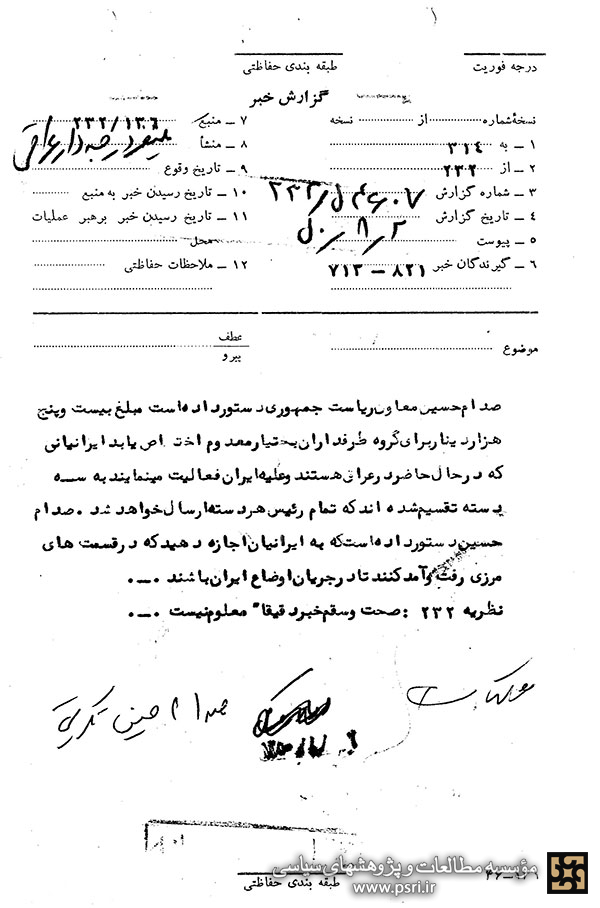 درجه فوریت
طبقه بندی حفاظتی
گزارش خبر
نسخهٔشماره از نسخه
۱ ــ به ۳۱٤
۲ ــ از ۲۳۲
۳ ــ شماره گزارش
٤ ــ تاریخ گزارش ۲ / ۸ / ۵۰
۵ ــ پیوست
۶ ــ گیرندگان خبر ۸۲۱ – ۷۱۳
۷ ــ منبع ۲۳۲/۱۳۰۶
۸ ــ منشأ
۹ ــ تاریخ وقوع
۱۰ ــ تاریخ رسیدن خبر به منبع
۱۱ ــ تاریخ رسیدن خبر برهبر عملیات
محل
۱۲ ــ ملاحظات حفاظتی
موضوع
عطف
پیرو
صدام حسین معاون ریاست جمهوری دستور داده است مبلغ بیست و پنج
هزار دینار برای گروه طرفداران بختیار معدوم اختصاص یابد ایرانیانی
که در حال حاضر در عراق هستند و علیه ایران فعالیت مینمایند به سه
دسته تقسیم شده اند که تمام رئیس هر دسته ارسال خواهد شد . صدام
حسین دستور داده است که به ایرانیان اجازه دهید که در قسمت های
مرزی رفت و آمد کنند تا در جریان اوضاع ایران باشند ۰ــ۰
نظریه ۲۳۲ : صحت و سقم خبر دقیقاً معلوم نیست ۰ــ۰
صدام حسین تکریتی
مؤسسه مطالعات و پژوهشهای سیاسی
www.psri.ir
طبقه بندی حفاظتی